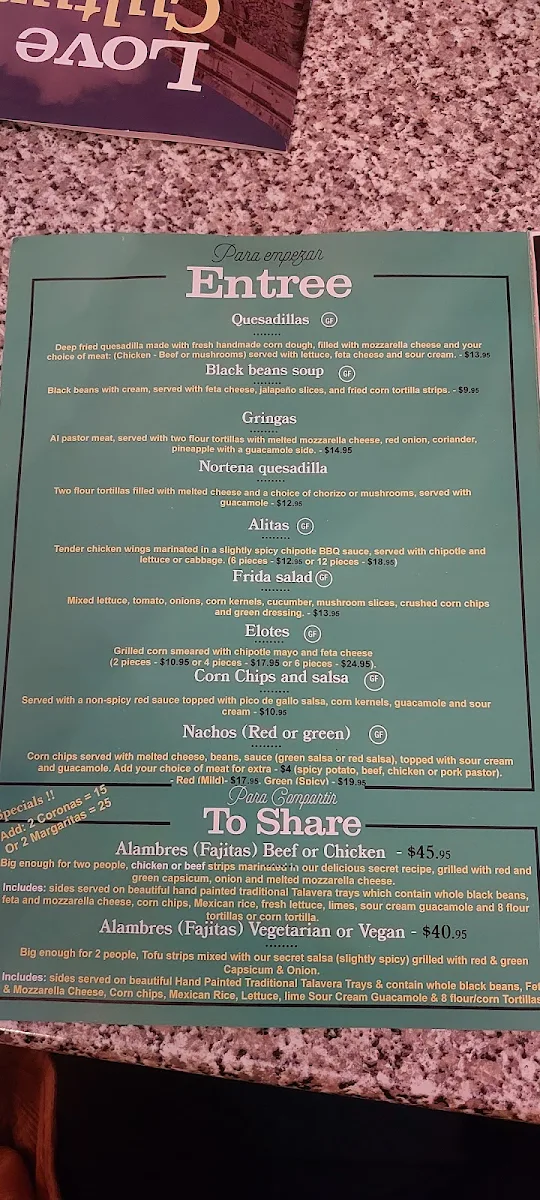 Love
Culture
Para empezar
Entree
Quesadillas GF
Deep fried quesadilla made with fresh handmade corn dough, filled with mozzarella cheese and your
choice of meat: (Chicken - Beef or mushrooms) served with lettuce, feta cheese and sour cream. - $13.95
Black beans soup GF
Black beans with cream, served with feta cheese, jalapeño slices, and fried corn tortilla strips. - $9.95
Gringas
Al pastor meat, served with two flour tortillas with melted mozzarella cheese, red onion, coriander,
pineapple with a guacamole side. - $14.95
Nortena quesadilla
Two flour tortillas filled with melted cheese and a choice of chorizo or mushrooms, served with
guacamole - $12.95
Alitas GF
Tender chicken wings marinated in a slightly spicy chipotle BBQ sauce, served with chipotle and
lettuce or cabbage. (6 pieces - $12.95 or 12 pieces - $18.95)
Frida salad GF
Mixed lettuce, tomato, onions, corn kernels, cucumber, mushroom slices, crushed corn chips
and green dressing. - $13.95
Elotes GF
Grilled corn smeared with chipotle mayo and feta cheese
(2 pieces - $10.95 or 4 pieces - $17.95 or 6 pieces - $24.95).
Corn Chips and salsa GF
Served with a non-spicy red sauce topped with pico de gallo salsa, corn kernels, guacamole and sour
cream - $10.95
Nachos (Red or green) GF
Corn chips served with melted cheese, beans, sauce (green salsa or red salsa), topped with sour cream
and guacamole. Add your choice of meat for extra - $4 (spicy potato, beef, chicken or pork pastor).
- Red (Mild)- $17.95, Green (Spicy) - $19.95
Specials !!
Add: 2 Coronas = 15
Or 2 Margaritas = 25
Para Compartir
To Share
Alambres (Fajitas) Beef or Chicken - $45.95
Big enough for two people, chicken or beef strips marinated in our delicious secret recipe, grilled with red and
green capsicum, onion and melted mozzarella cheese.
Includes: sides served on beautiful hand painted traditional Talavera trays which contain whole black beans,
feta and mozzarella cheese, corn chips, Mexican rice, fresh lettuce, limes, sour cream guacamole and 8 flour
tortillas or corn tortilla.
Alambres (Fajitas) Vegetarian or Vegan - $40.95
Big enough for 2 people, Tofu strips mixed with our secret salsa (slightly spicy) grilled with red & green
Capsicum & Onion.
Includes: sides served on beautiful Hand Painted Traditional Talavera Trays & contain whole black beans, Fet
& Mozzarella Cheese, Corn chips, Mexican Rice, Lettuce, lime Sour Cream Guacamole & 8 flour/corn Tortillas